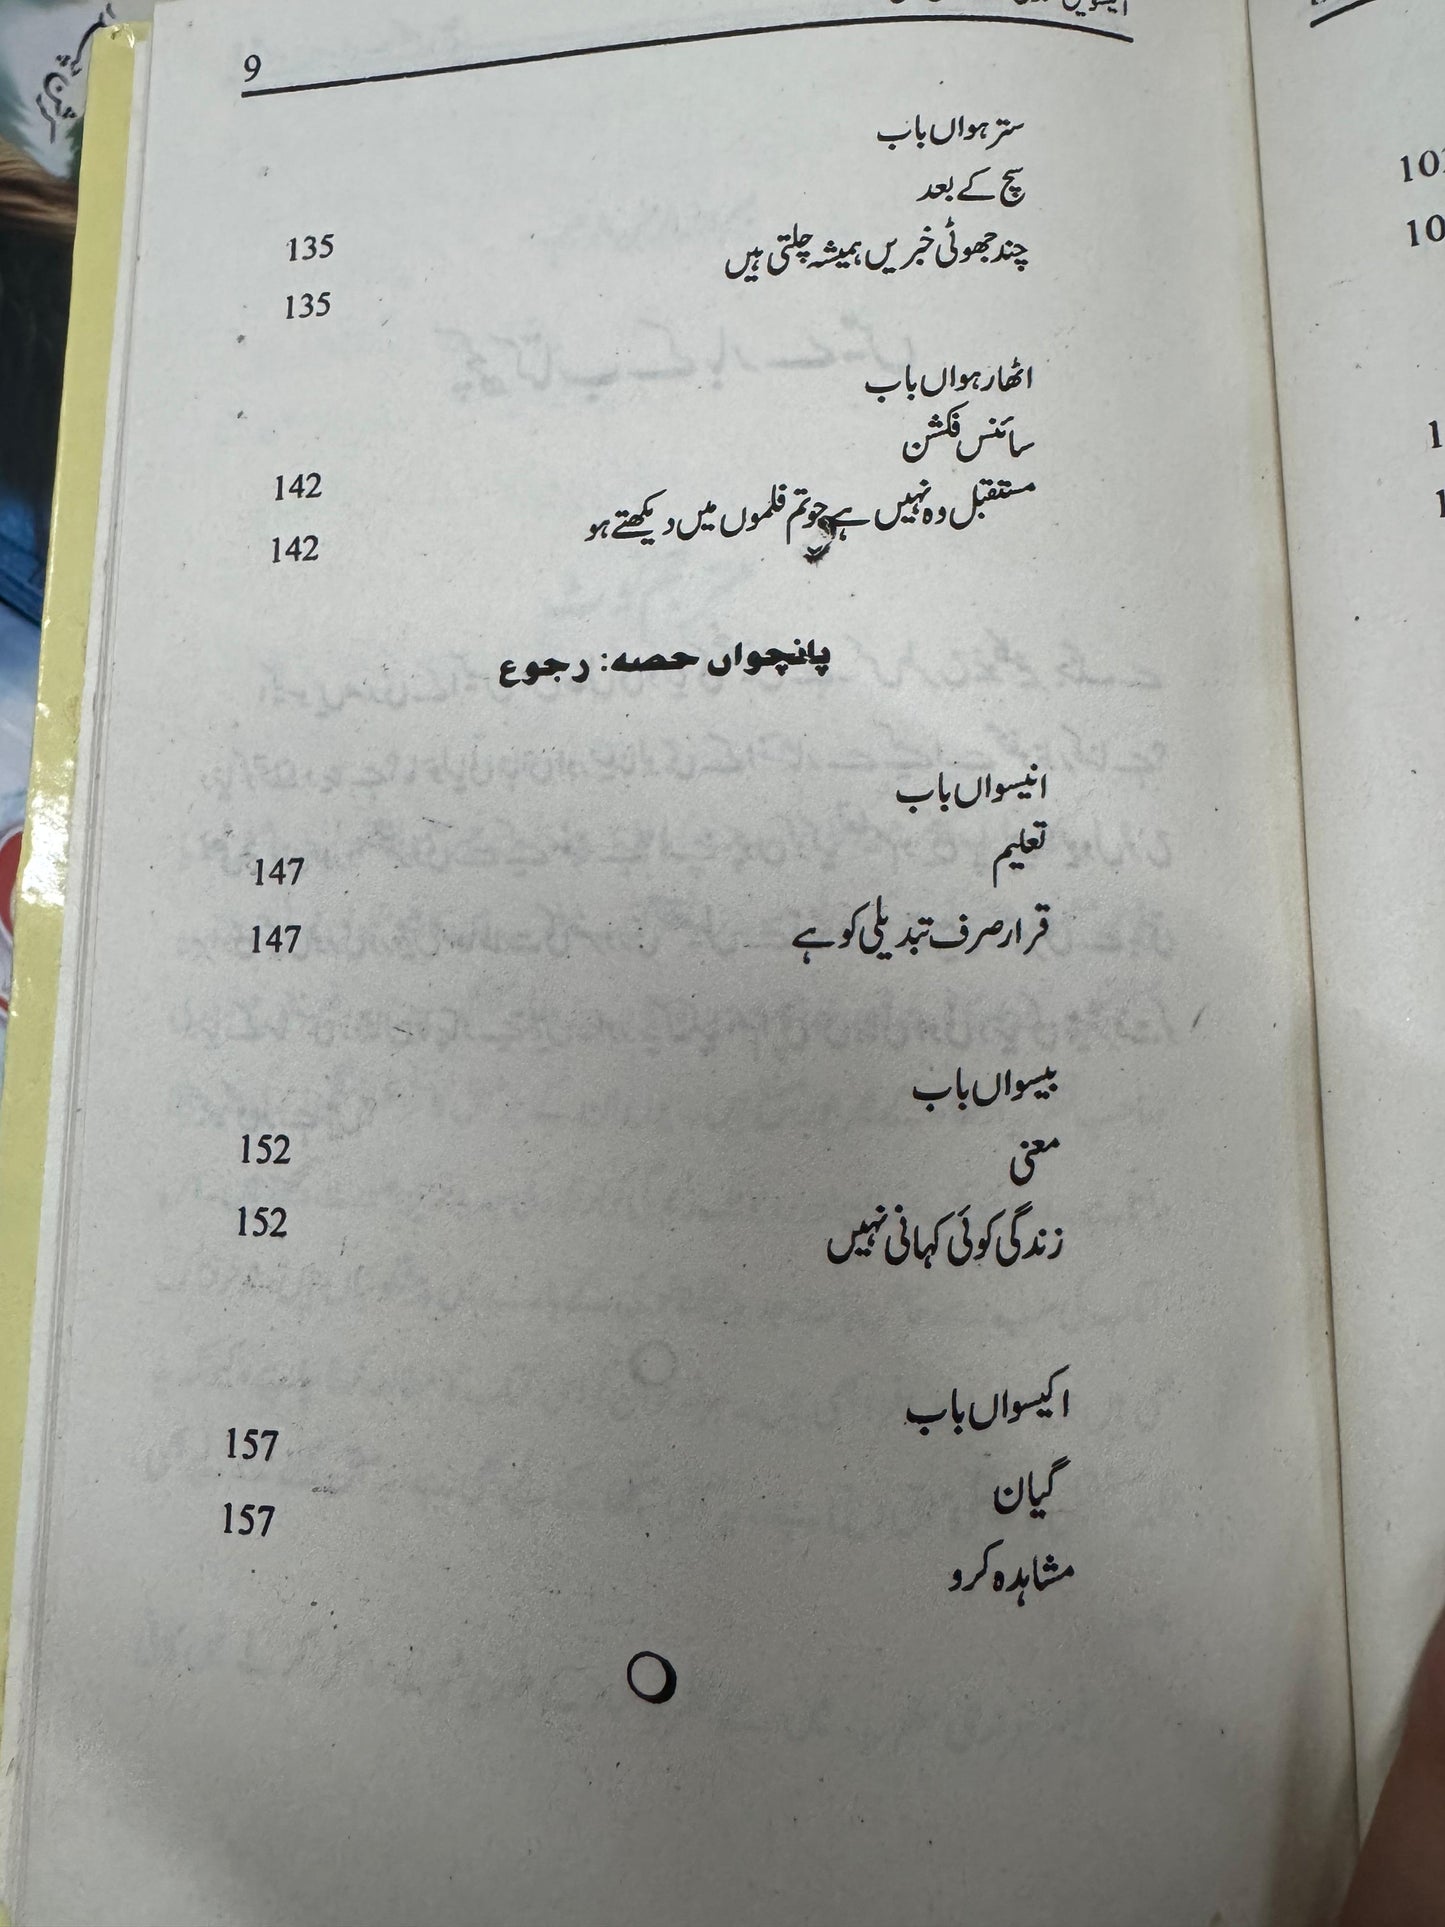 9
ستر ہواں باب
سچ کے بعد
چند جھوٹی خبریں ہمیشہ چلتی ہیں 135
135
اٹھار ہواں باب
سائنس فکشن
مستقبل وہ نہیں ہے جو تم فلموں میں دیکھتے ہو 142
142
پانچواں حصہ: رجوع
انیسواں باب
تعلیم 147
قرار صرف تبدیلی کو ہے 147
بیسواں باب
معنی 152
زندگی کوئی کہانی نہیں 152
اکیسواں باب
گیان 157
مشاہدہ کرو 157